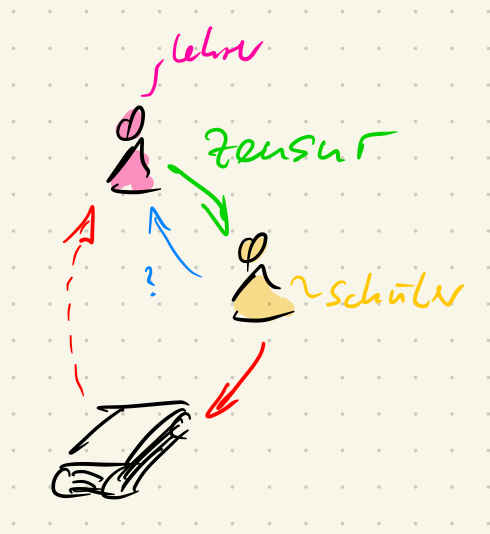 Lehrer
Zensur
?
Schüler